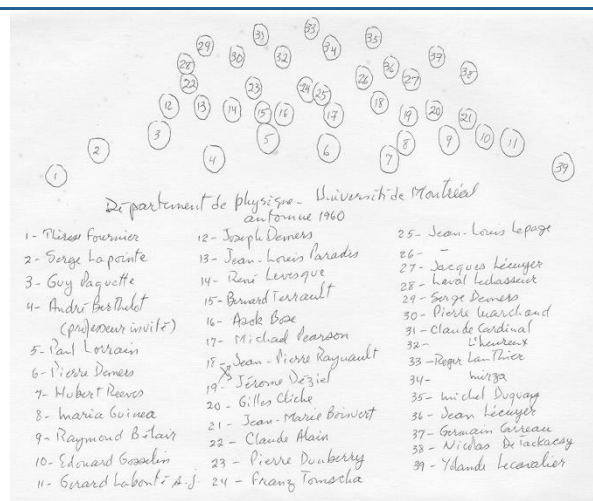 33
31
35
29
34
30
32
37
28
36
38
26
22
23
27
24
25
12
13
14
15
16
17
18
19
20
21
3
5
8
9
10
11
2
4
6
7
39
1
Département de physique - Université de Montréal
automne 1960
1 - Thérèse Fournier
2 - Serge Lapointe
3 - Guy Paquette
4 - André Berthelot
(professeur invité)
5 - Paul Lorrain
6 - Pierre Demers
7 - Hubert Reeves
8 - Maria Guinea
9 - Raymond Bélair
10 - Edouard Gosselin
11 - Gerard Labonté s.j.
12 - Joseph Demers
13 - Jean-Louis Paradis
14 - René Levesque
15 - Bernard Terrault
16 - Asok Bose
17 - Michael Pearson
18 - Jean-Pierre Raynault
19 - Jérome Déziel
20 - Gilles Cliche
21 - Jean-Marie Boisvert
22 - Claude Alain
23 - Pierre Dunberry
24 - Franz Tomscha
25 - Jean-Louis Lepage
26 - -
27 - Jacques Lécuyer
28 - Laval Lechasseur
29 - Serge Demers
30 - Pierre Marchand
31 - Claude Cardinal
32 - L'heureux
33 - Roger Lanthier
34 - Mirza
35 - Michel Duguay
36 - Jean Lécuyer
37 - Germain Carreau
38 - Nicolas De Tackacsy
39 - Yolande Lecavalier